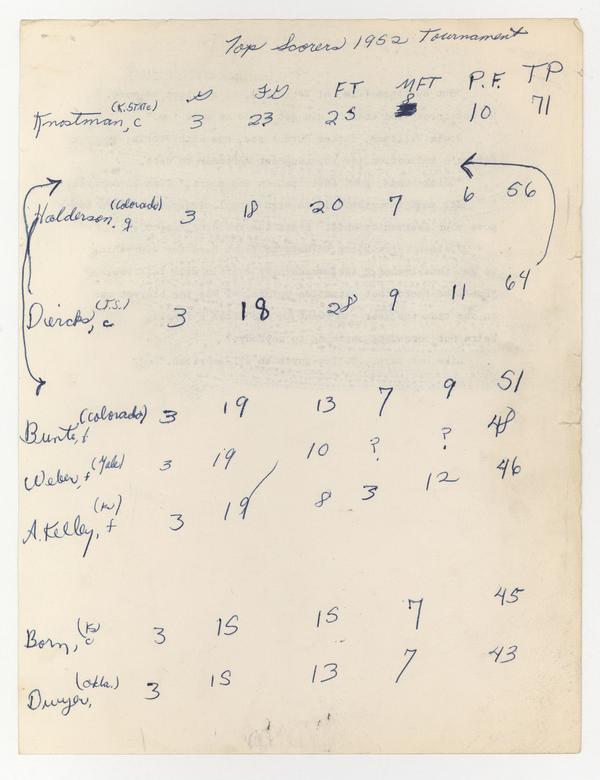 Top Scorers 1952 Tournament
G FG FT MFT P.F. TP
Knostman, c (K. State) 3 23 25 8 10 71
Halderson, g (Colorado) 3 18 20 7 6 56
Diercks, c (I.S.) 3 18 28 9 11 64
Bunte, f (Colorado) 3 19 13 7 9 51
Weber, f (Yale) 3 19 10 ? ? 48
A. Kelley, f (Ku) 3 19 8 3 12 46
Born, c (Ku) 3 15 15 7 45
Dwyer, (Okla.) 3 15 13 7 43